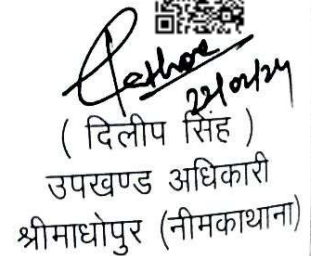 22/02/24
( दिलीप सिंह )
उपखण्ड अधिकारी
श्रीमाधोपुर (नीमकाथाना)